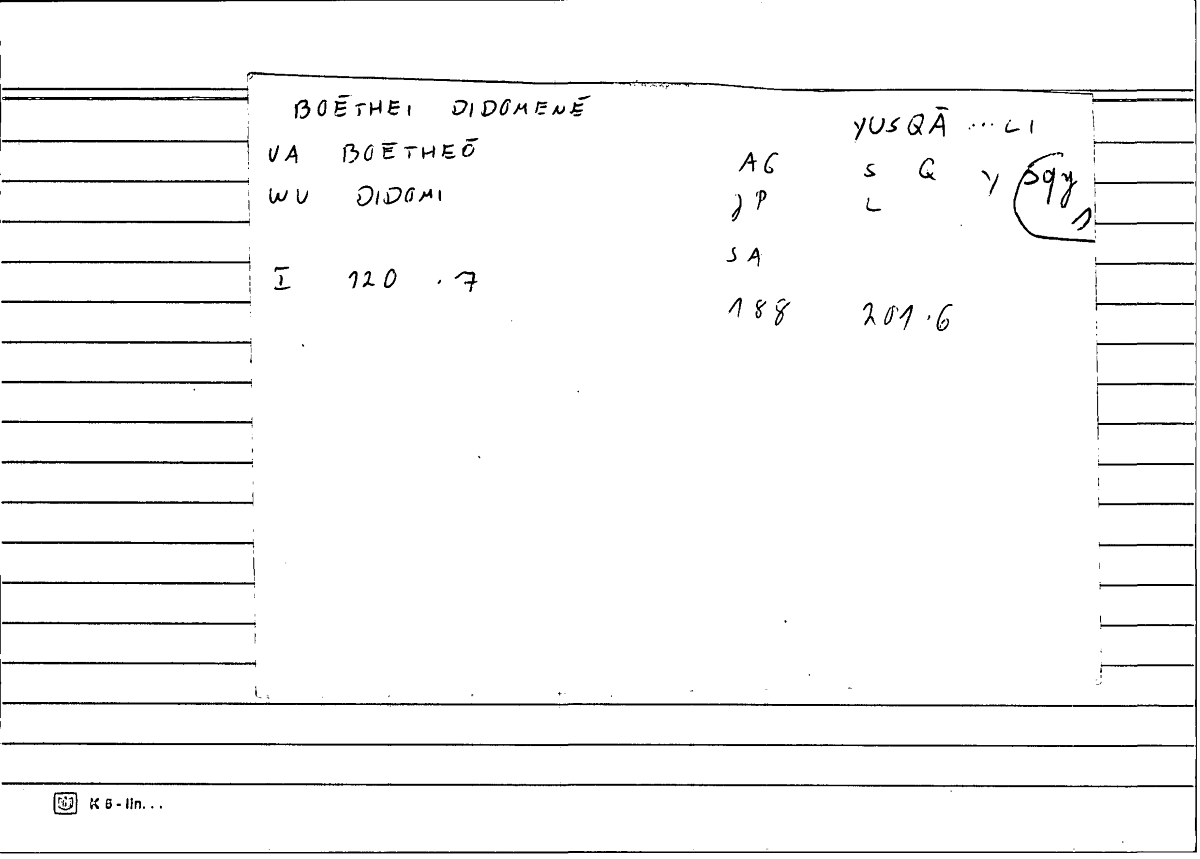 BOĒTHEI DIDOMENĒ
YUSQĀ ... LI
VA BOĒTHEŌ
AG S Q Y sqy 1
WU DIDOMI
P L
SA
I 120 .7
188 201.6
K 6 - lin...